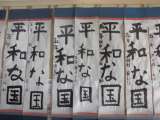 平和な国
平和な国
平和な国
平和な国
平和な国
平和な国